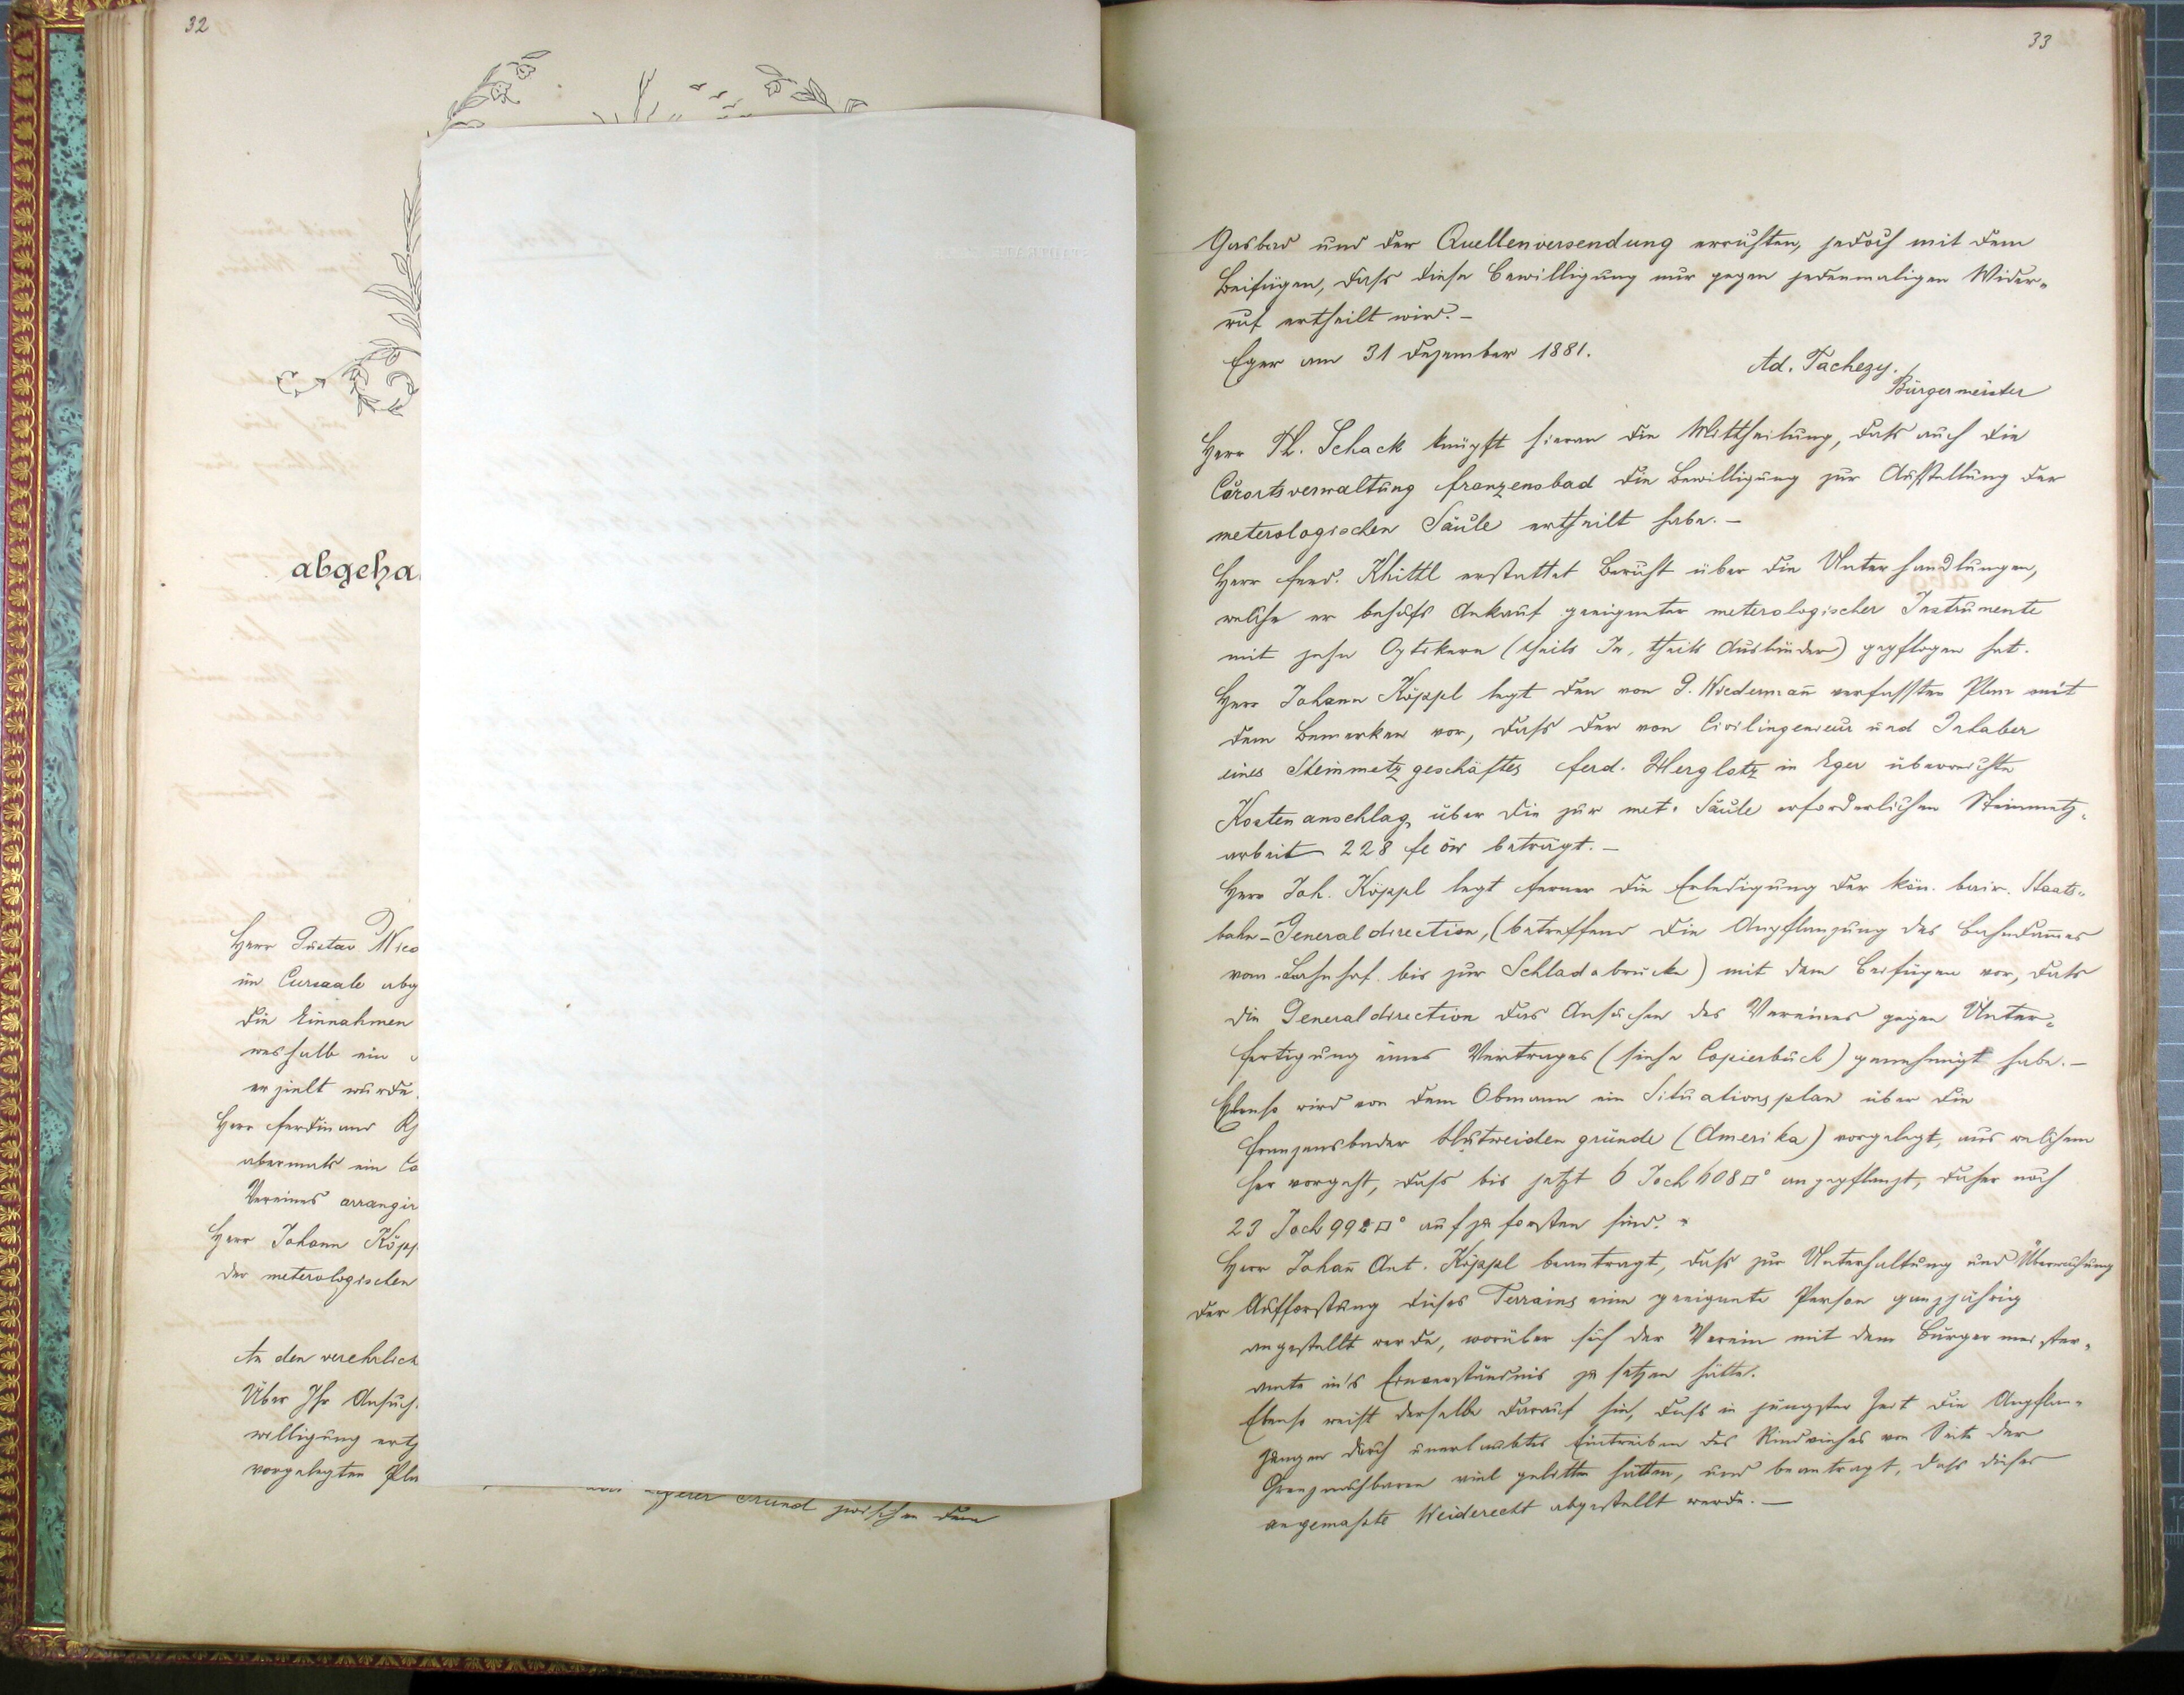 32
abgeha
Herr Gustav Wied
im Cursaale abg
die Einnahmen
weshalb ein
erzielt wurde.
Herr Ferdinand Kh
abermals ein Co
Vereines arrangir
Herr Johann Köpp
der meterologischen
An den verehrlich
Über Ihr Ansuch
willigung erth
vorgelegten Pla
Grund zwischen dem
33
Gasbad und der Quellenversendung errichten, jedoch mit dem
Beifügen, dass diese Bewilligung nur gegen jedenmaligen Wider-
ruf ertheilt wird. –
Eger am 31 Dezember 1881.
Ad. Tachezy.
Bürgermeister
Herr Th. Schack knüpft hieran die Mittheilung, dass auch die
Cürortsverwaltung Franzensbad die Bewilligung zur Aufstellung der
meterologischen Säule ertheilt habe. –
Herr Ferd. Khittl erstattet Bericht über die Unterhandlungen,
welche er behufs Ankauf geeigneter meterologischer Instrumente
mit zehn Optikern (theils In, theils Ausländer) gepflogen hat.
Herr Johann Köppl legt den von G. Wiedermañ verfassten Plan mit
dem Bemerken vor, dass der von Civilingenieur und Inhaber
eines Steinmetzgeschäftes Ferd. Herglotz in Eger überreichte
Kostenanschlag über die zur met. Säule erforderlichen Steinmetz-
arbeit 228 fl öw beträgt. –
Herr Joh. Köppl legt ferner die Erledigung der kön. bair. Staats-
bahn-Generaldirection, (betreffend die Anpflanzung des Bahndam̄es
vom Bahnhof bis zur Schladabrücke) mit dem Beifügen vor, dass
die Generaldirection das Ansuchen des Vereines gegen Unter-
fertigung eines Vertrages (siehe Copierbuch) genehmigt habe. –
Ebenso wird von dem Obmann ein Situationsplan über die
Franzensbader Hutweidengründe (Amerika) vorgelegt, aus welchem
hervorgeht, dass bis jetzt 6 Joch 608 □° angepflanzt, daher noch
23 Joch 992 □° aufzuforsten sind. –
Herr Johañ Ant. Köppl beantragt, dass zur Unterhaltung und Überwachung
der Aufforstung dieses Terrains eine geeignete Person ganzjährig
angestellt werde, worüber sich der Verein mit dem Bürgermeister-
amte in's Einverständnis zu setzen hätte.
Ebenso weist derselbe darauf hin, dass in jüngster Zeit die Anpflan-
zungen durch unerlaubtes Eintreiben des Rindviehes von Seite der
Grenznachbaren viel gelitten hätten, und beantragt, dass dieses
angemasste Weiderecht abgestellt werde. –